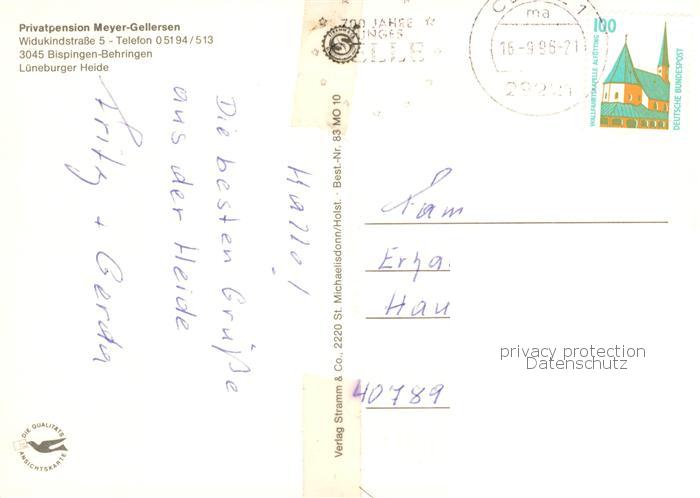 Privatpension Meyer-Gellersen
Widukindstraße 5 - Telefon 05194/513
3045 Bispingen-Behringen
Lüneburger Heide
Hallo!
Die besten Grüße
aus der Heide
Fritz + Gerda
DIE QUALITÄTS
ANSICHTSKARTE
Verlag Stramm & Co., 2220 St. Michaelisdonn/Holst. · Best.-Nr. 83 MO 10
700 JAHRE
CELLE
ma
16-9.96-21
100
WALLFAHRTSKAPELLE ALTÖTTING
DEUTSCHE BUNDESPOST
Fam
Hau
40789
privacy protection
Datenschutz